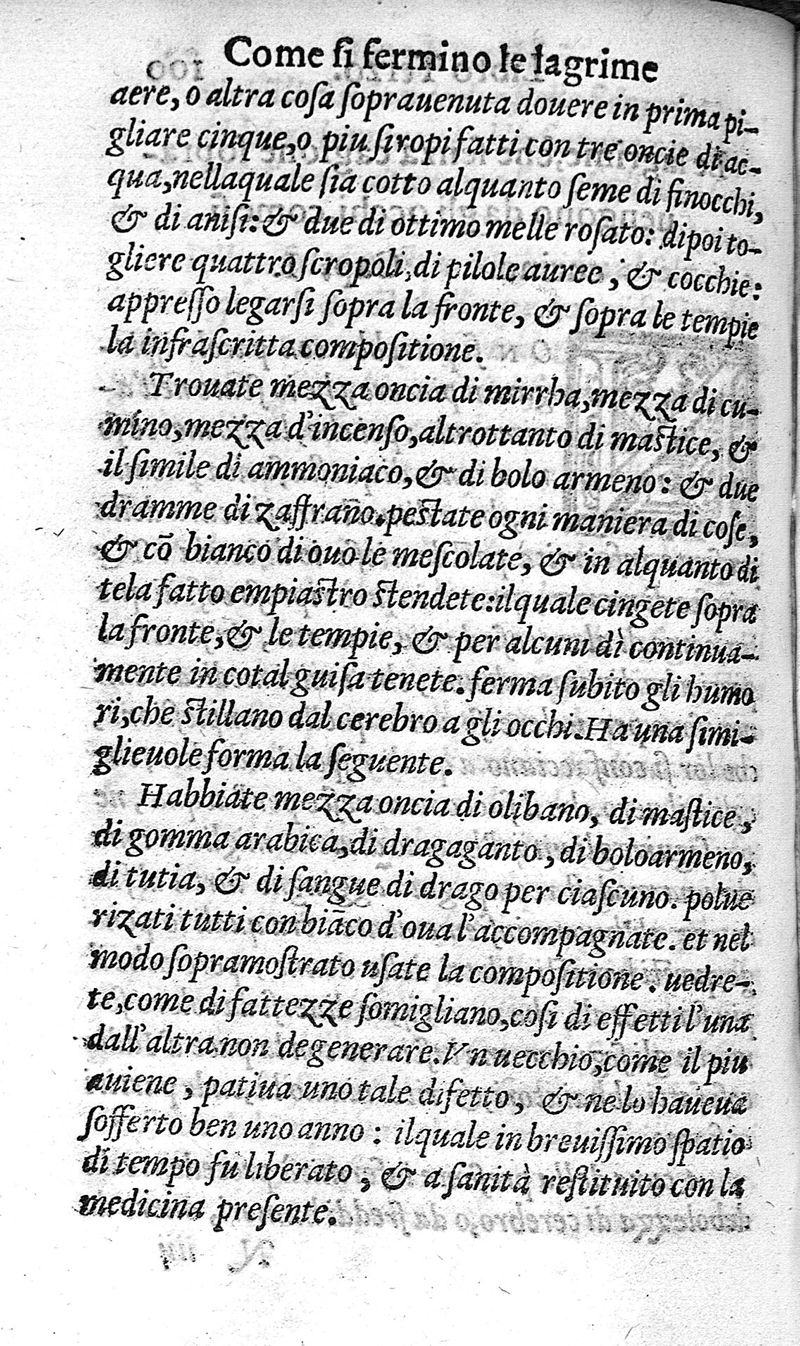 Come ſi fermino le lagrime
aere, o altra coſa ſoprauenuta douere in prima pi-
gliare cinque, o piu ſiropi fatti con tre oncie di ac-
qua, nellaquale ſia cotto alquanto ſeme di finocchi,
& di aniſi: & due di ottimo melle roſato: dipoi to-
gliere quattro ſcropoli, di pilole auree, & cocchie:
appreſſo legarſi ſopra la fronte, & ſopra le tempie
la infraſcritta compoſitione.
Trouate mezza oncia di mirrha, mezza di cu-
mino, mezza d'incenſo, altrottanto di maſtice, &
il ſimile di ammoniaco, & di bolo armeno: & due
dramme di zaffrano. peſtate ogni maniera di coſe,
& cō bianco di ouo le meſcolate, & in alquanto di
tela fatto empiaſtro ſtendete: ilquale cingete ſopra
la fronte, & le tempie, & per alcuni dì continua-
mente in cotal guiſa tenete. ferma ſubito gli humo
ri, che ſtillano dal cerebro a gli occhi. Ha una ſimi-
glieuole forma la ſeguente.
Habbiate mezza oncia di olibano, di maſtice,
di gomma arabica, di dragaganto, di boloarmeno,
di tutia, & di ſangue di drago per ciaſcuno. polue
rizati tutti con biāco d'oua l'accompagnate. et nel
modo ſopramoſtrato uſate la compoſitione. uedre-
te, come di fattezze ſomigliano, coſi di effetti l'una
dall'altra non degenerare. Vn uecchio, come il piu
auiene, patiua uno tale difetto, & ne lo haueua
ſofferto ben uno anno: ilquale in breuiſſimo ſpatio
di tempo fu liberato, & a ſanità reſtituito con la
medicina preſente.